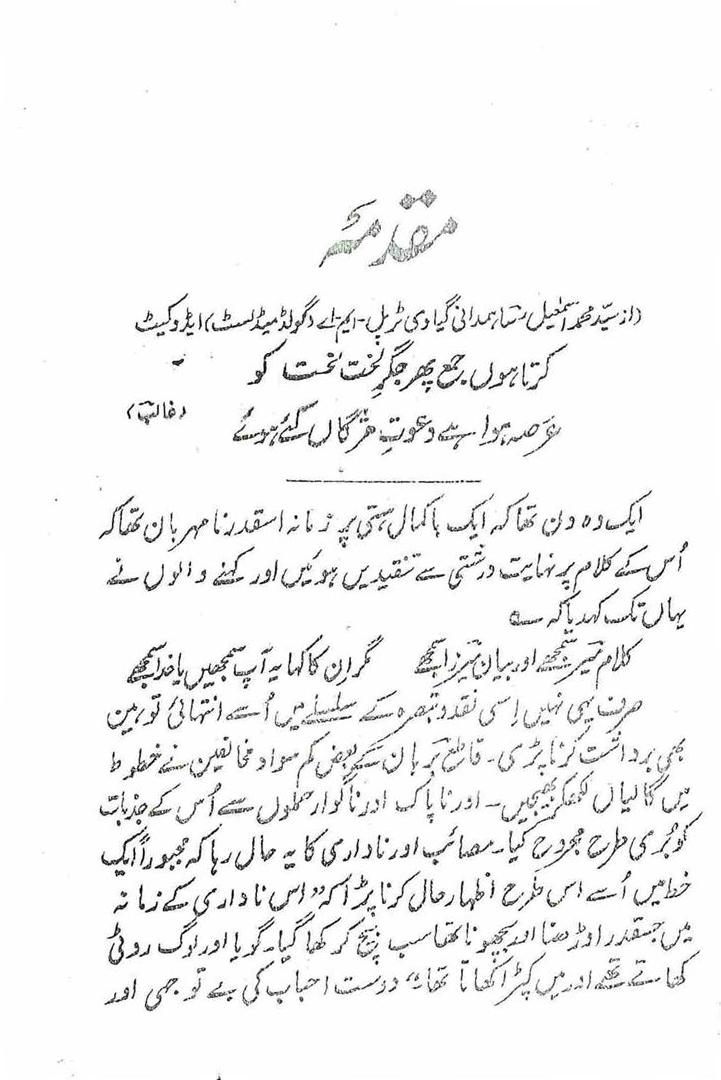 مقدمۂ
(از سیّد محمد اسمٰعیل رسا ہمدانی گیاوی ٹرپل-ایم-اے (گولڈ میڈلسٹ) ایڈوکیٹ
کرتا ہوں جمع پھر جگرِ لخت لخت کو
عرصہ ہوا ہے دعوتِ مژگاں کئے ہوئے (غالبؔ)
ایک وہ دن تھا کہ ایک باکمال ہستی پر زمانہ اسقدر نامہربان تھا کہ
اُس کے کلام پر نہایت درشتی سے تنقیدیں ہوئیں اور کہنے والوں نے
یہاں تک کہدیا کہ ؎
کلام میرؔ سمجھے اور بیان میرزاؔ سمجھے مگر ان کا کہا یہ آپ سمجھیں یا خدا سمجھے
صرف یہی نہیں اِسی نقد و تبصرہ کے سلسلے میں اُسے انتہائی توہین
بھی برداشت کرنا پڑی۔ قاطع برہان کے بعض کم سواد مخالفین نے خطوط
میں گالیاں لکھکر بھیجیں۔ اور ناپاک اور ناگوار حملوں سے اُس کے جذبات
کو بُری طرح مجروح کیا۔ مصائب اور ناداری کا یہ حال رہا کہ مجبوراً ایک
خط میں اُسے اس طرح اظہار حال کرنا پڑا کہ "اس ناداری کے زمانہ
میں جسقدر اوڑھنا اور بچھونا تھا سب بیچ کر کھا گیا۔ گویا اور لوگ روٹی
کھاتے تھے اور میں کپڑا کھاتا تھا" دوست احباب کی بے توجہی اور